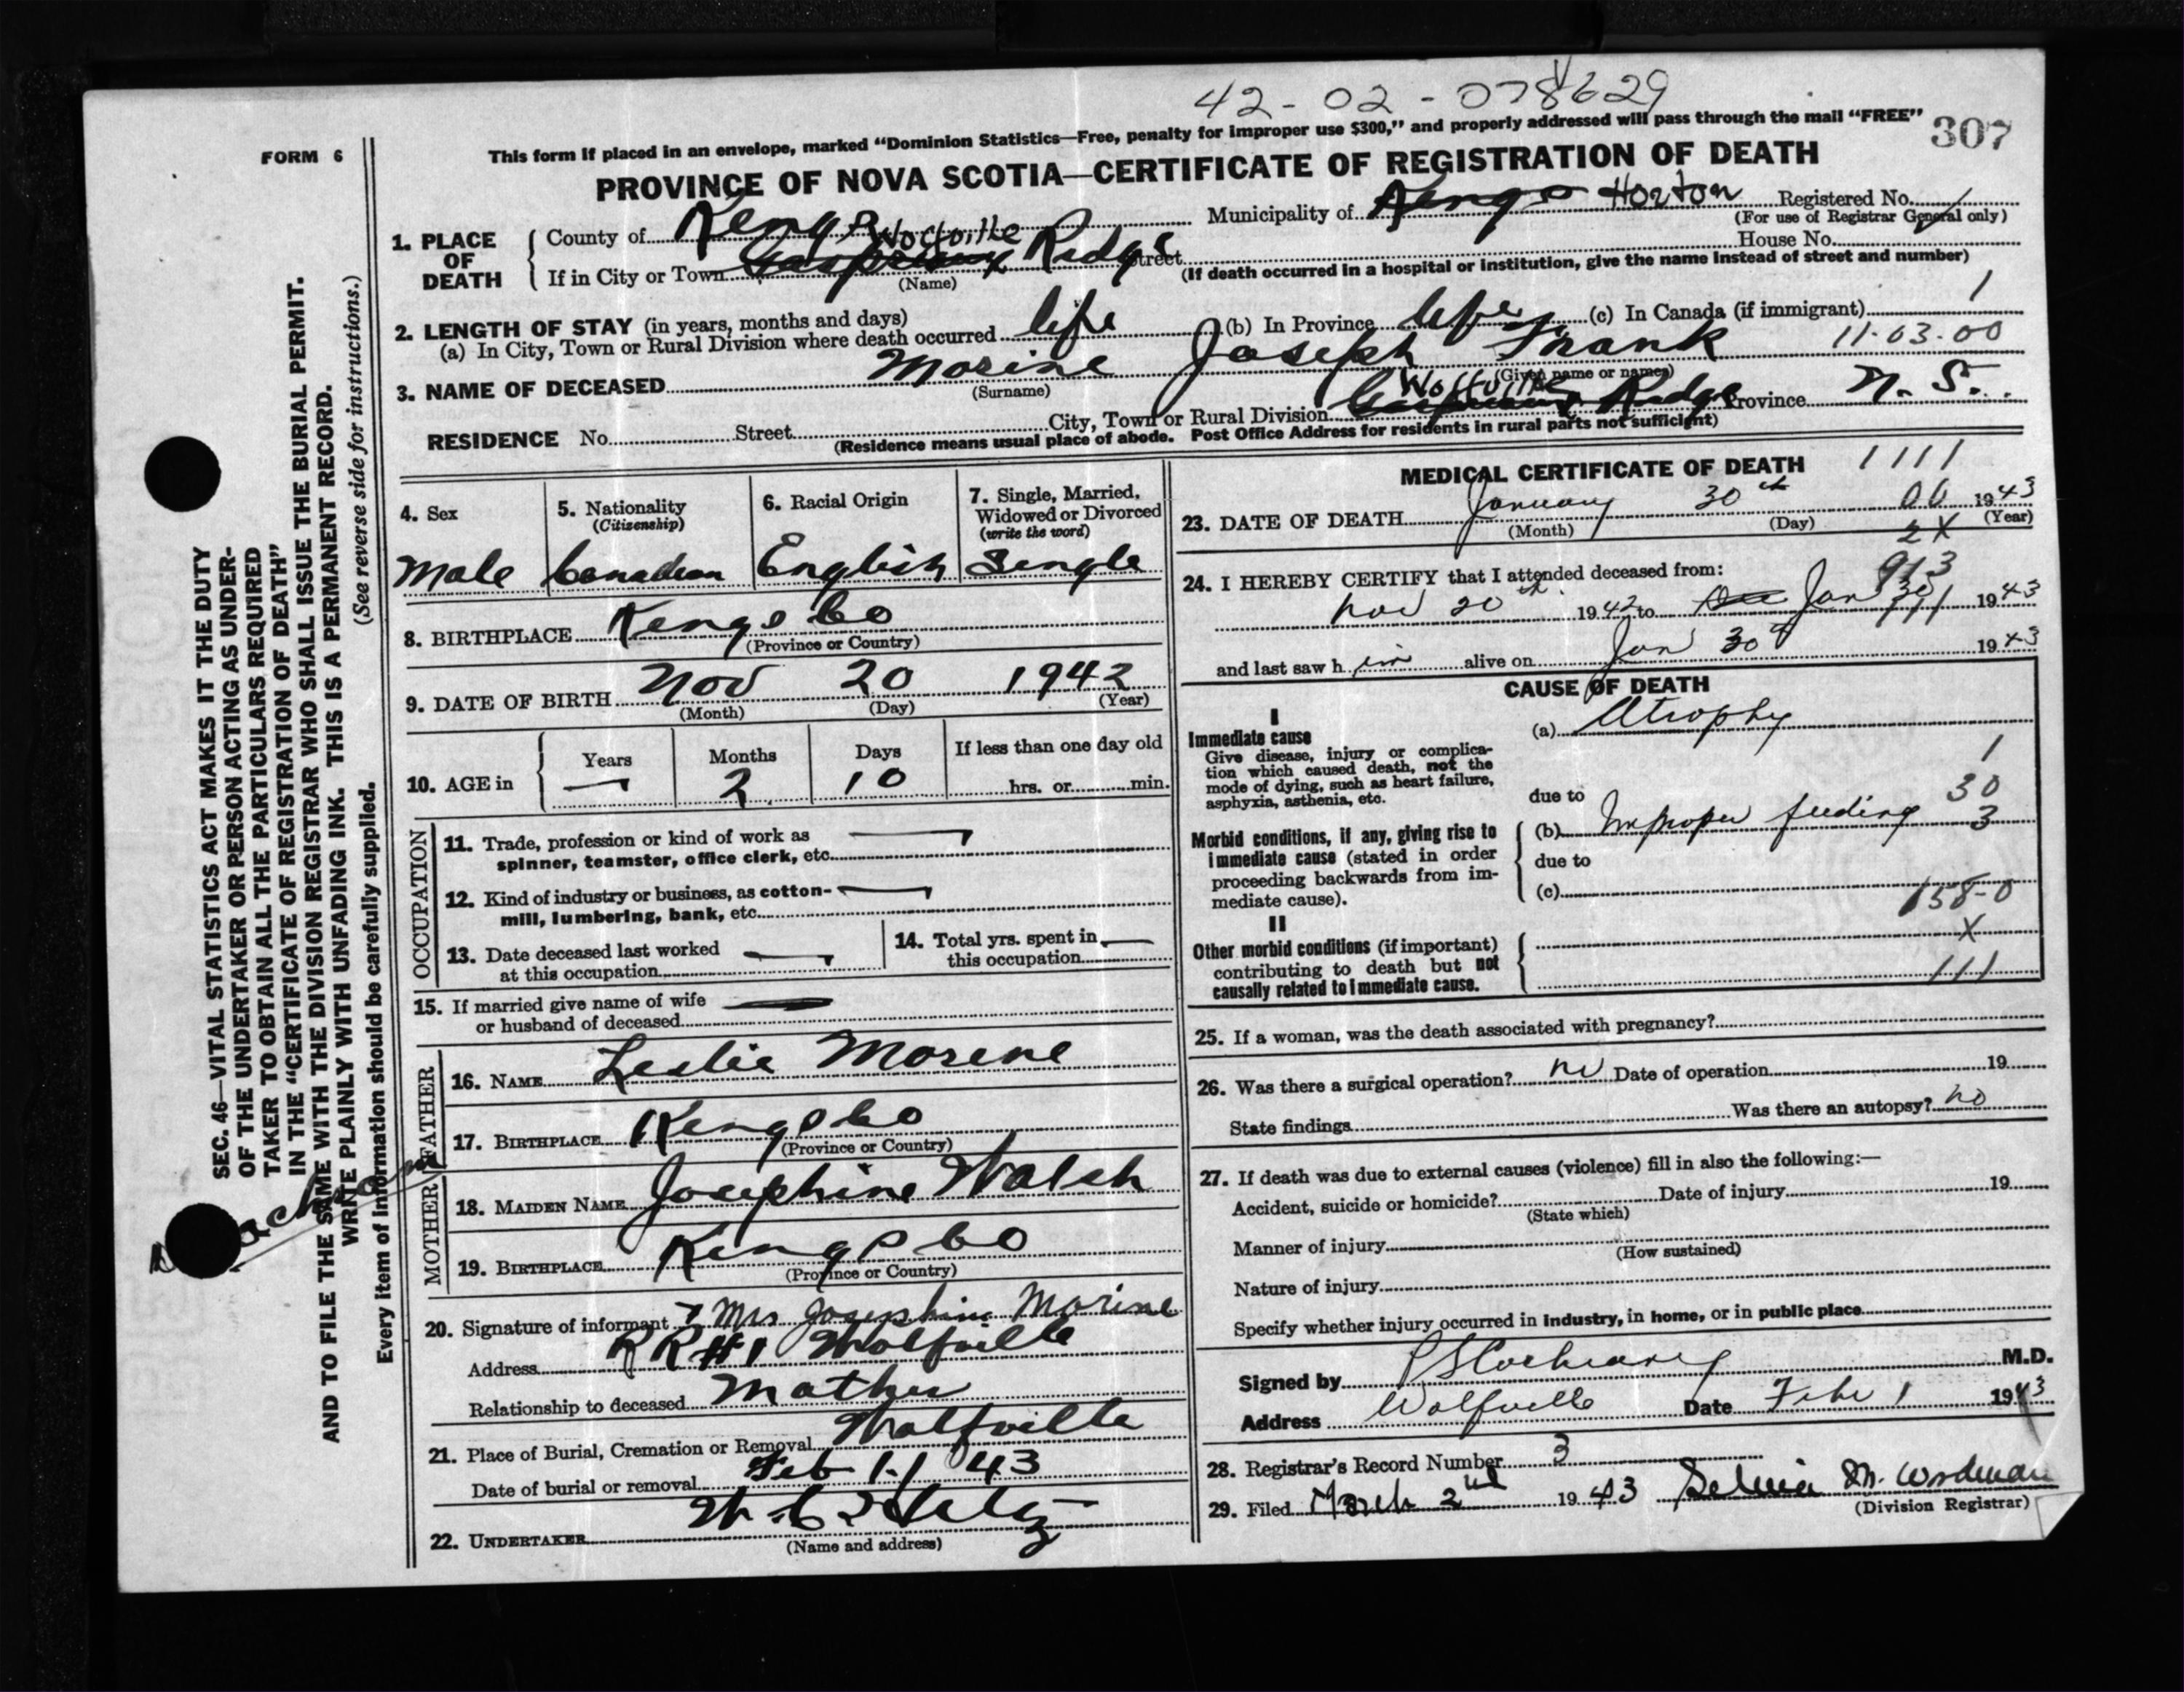 42-02-078629
This form if placed in an envelope, marked "Dominion Statistics—Free, penalty for improper use $300," and properly addressed will pass through the mail "FREE"
307
FORM 6
PROVINCE OF NOVA SCOTIA—CERTIFICATE OF REGISTRATION OF DEATH
1. PLACE OF DEATH
County of Kings Municipality of Kings Horton Registered No.
(For use of Registrar General only)
If in City or Town Wolfville Ridge Street House No.
(Name) (If death occurred in a hospital or institution, give the name instead of street and number)
2. LENGTH OF STAY (in years, months and days)
(a) In City, Town or Rural Division where death occurred life (b) In Province life (c) In Canada (if immigrant) 1
3. NAME OF DECEASED Morine Joseph Frank 11-03-00
(Surname) (Given name or names)
RESIDENCE No. Street City, Town or Rural Division Wolfville Ridge Province N. S.
(Residence means usual place of abode. Post Office Address for residents in rural parts not sufficient)
4. Sex
Male
5. Nationality
(Citizenship)
Canadian
6. Racial Origin
English
7. Single, Married,
Widowed or Divorced
(write the word)
Single
8. BIRTHPLACE Kings Co
(Province or Country)
9. DATE OF BIRTH Nov 20 1942
(Month) (Day) (Year)
10. AGE in Years — Months 2 Days 10 If less than one day old
hrs. or min.
OCCUPATION
11. Trade, profession or kind of work as
spinner, teamster, office clerk, etc. —
12. Kind of industry or business, as cotton-
mill, lumbering, bank, etc. —
13. Date deceased last worked
at this occupation —
14. Total yrs. spent in
this occupation —
15. If married give name of wife
or husband of deceased —
FATHER
16. NAME Leslie Morine
17. BIRTHPLACE Kings Co
(Province or Country)
MOTHER
18. MAIDEN NAME Josephine Walsh
19. BIRTHPLACE Kings Co
(Province or Country)
20. Signature of informant Mrs Josephine Morine
Address RR #1 Wolfville
Relationship to deceased Mother
21. Place of Burial, Cremation or Removal Wolfville
Date of burial or removal Feb 1-1943
22. UNDERTAKER
(Name and address)
MEDICAL CERTIFICATE OF DEATH 1111
23. DATE OF DEATH January 30th 06 1943
(Month) (Day) (Year)
2X
24. I HEREBY CERTIFY that I attended deceased from: 913
Nov 20th 1942 to Jan 30 1943
111
and last saw h im alive on Jan 30th 1943
CAUSE OF DEATH
I
Immediate cause
Give disease, injury or complica-
tion which caused death, not the
mode of dying, such as heart failure,
asphyxia, asthenia, etc.
(a) Atrophy
1
due to 30
Morbid conditions, if any, giving rise to
immediate cause (stated in order
proceeding backwards from im-
mediate cause).
(b) Improper feeding 3
due to
(c) 158-0
II
Other morbid conditions (if important)
contributing to death but not
causally related to immediate cause.
X
111
25. If a woman, was the death associated with pregnancy?
26. Was there a surgical operation? no Date of operation 19
State findings Was there an autopsy? no
27. If death was due to external causes (violence) fill in also the following:—
Accident, suicide or homicide? Date of injury 19
(State which)
Manner of injury
(How sustained)
Nature of injury
Specify whether injury occurred in industry, in home, or in public place
Signed by P S Cochrane M.D.
Address Wolfville Date Feb 1 1943
28. Registrar's Record Number 3
29. Filed March 2nd 1943 Selmia M. Woodman
(Division Registrar)
SEC. 46—VITAL STATISTICS ACT MAKES IT THE DUTY
OF THE UNDERTAKER OR PERSON ACTING AS UNDER-
TAKER TO OBTAIN ALL THE PARTICULARS REQUIRED
IN THE "CERTIFICATE OF REGISTRATION OF DEATH"
AND TO FILE THE SAME WITH THE DIVISION REGISTRAR WHO SHALL ISSUE THE BURIAL PERMIT.
WRITE PLAINLY WITH UNFADING INK. THIS IS A PERMANENT RECORD.
(See reverse side for instructions.)
Every item of information should be carefully supplied.